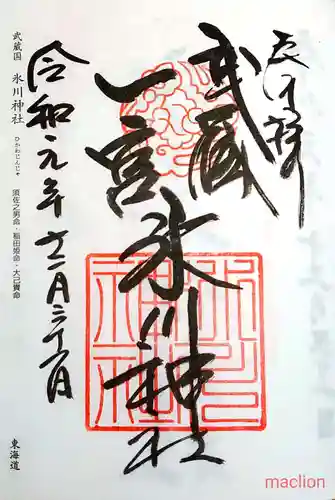 奉拝
武蔵
一宮
氷川神社
氷川神社
令和元年十一月三十日
武蔵国 氷川神社 ひかわじんじゃ 須佐之男命・稲田姫命・大己貴命
東海道
maclion